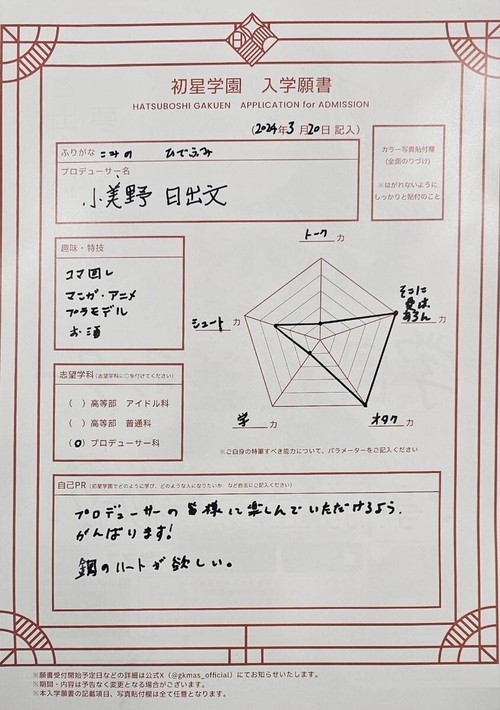 初星学園 入学願書
HATSUBOSHI GAKUEN APPLICATION for ADMISSION
(2024年3月20日 記入)
ふりがな こみの ひでふみ
プロデューサー名
小美野 日出文
カラー写真貼付欄
(全面のりづけ)
※はがれないように
しっかりと貼付のこと
趣味・特技
コマ回し
マンガ・アニメ
プラモデル
お酒
トーク力
そこに
愛は
あるん力
オタク力
学力
シュート力
※ご自身の特筆すべき能力について、パラメーターをご記入ください
志望学科(志望学科に○を付けてください)
( )高等部 アイドル科
( )高等部 普通科
(○)プロデューサー科
自己PR(初星学園でどのように学び、どのような人になりたいか など自由にご記入ください)
プロデューサーの皆様に楽しんでいただけるよう.
がんばります!
鋼のハートが欲しい。
※願書受付開始予定日などの詳細は公式X(@gkmas_official)にてお知らせいたします。
※期間・内容は予告なく変更となる場合がございます。
※本入学願書の記載項目、写真貼付欄は全て任意となります。